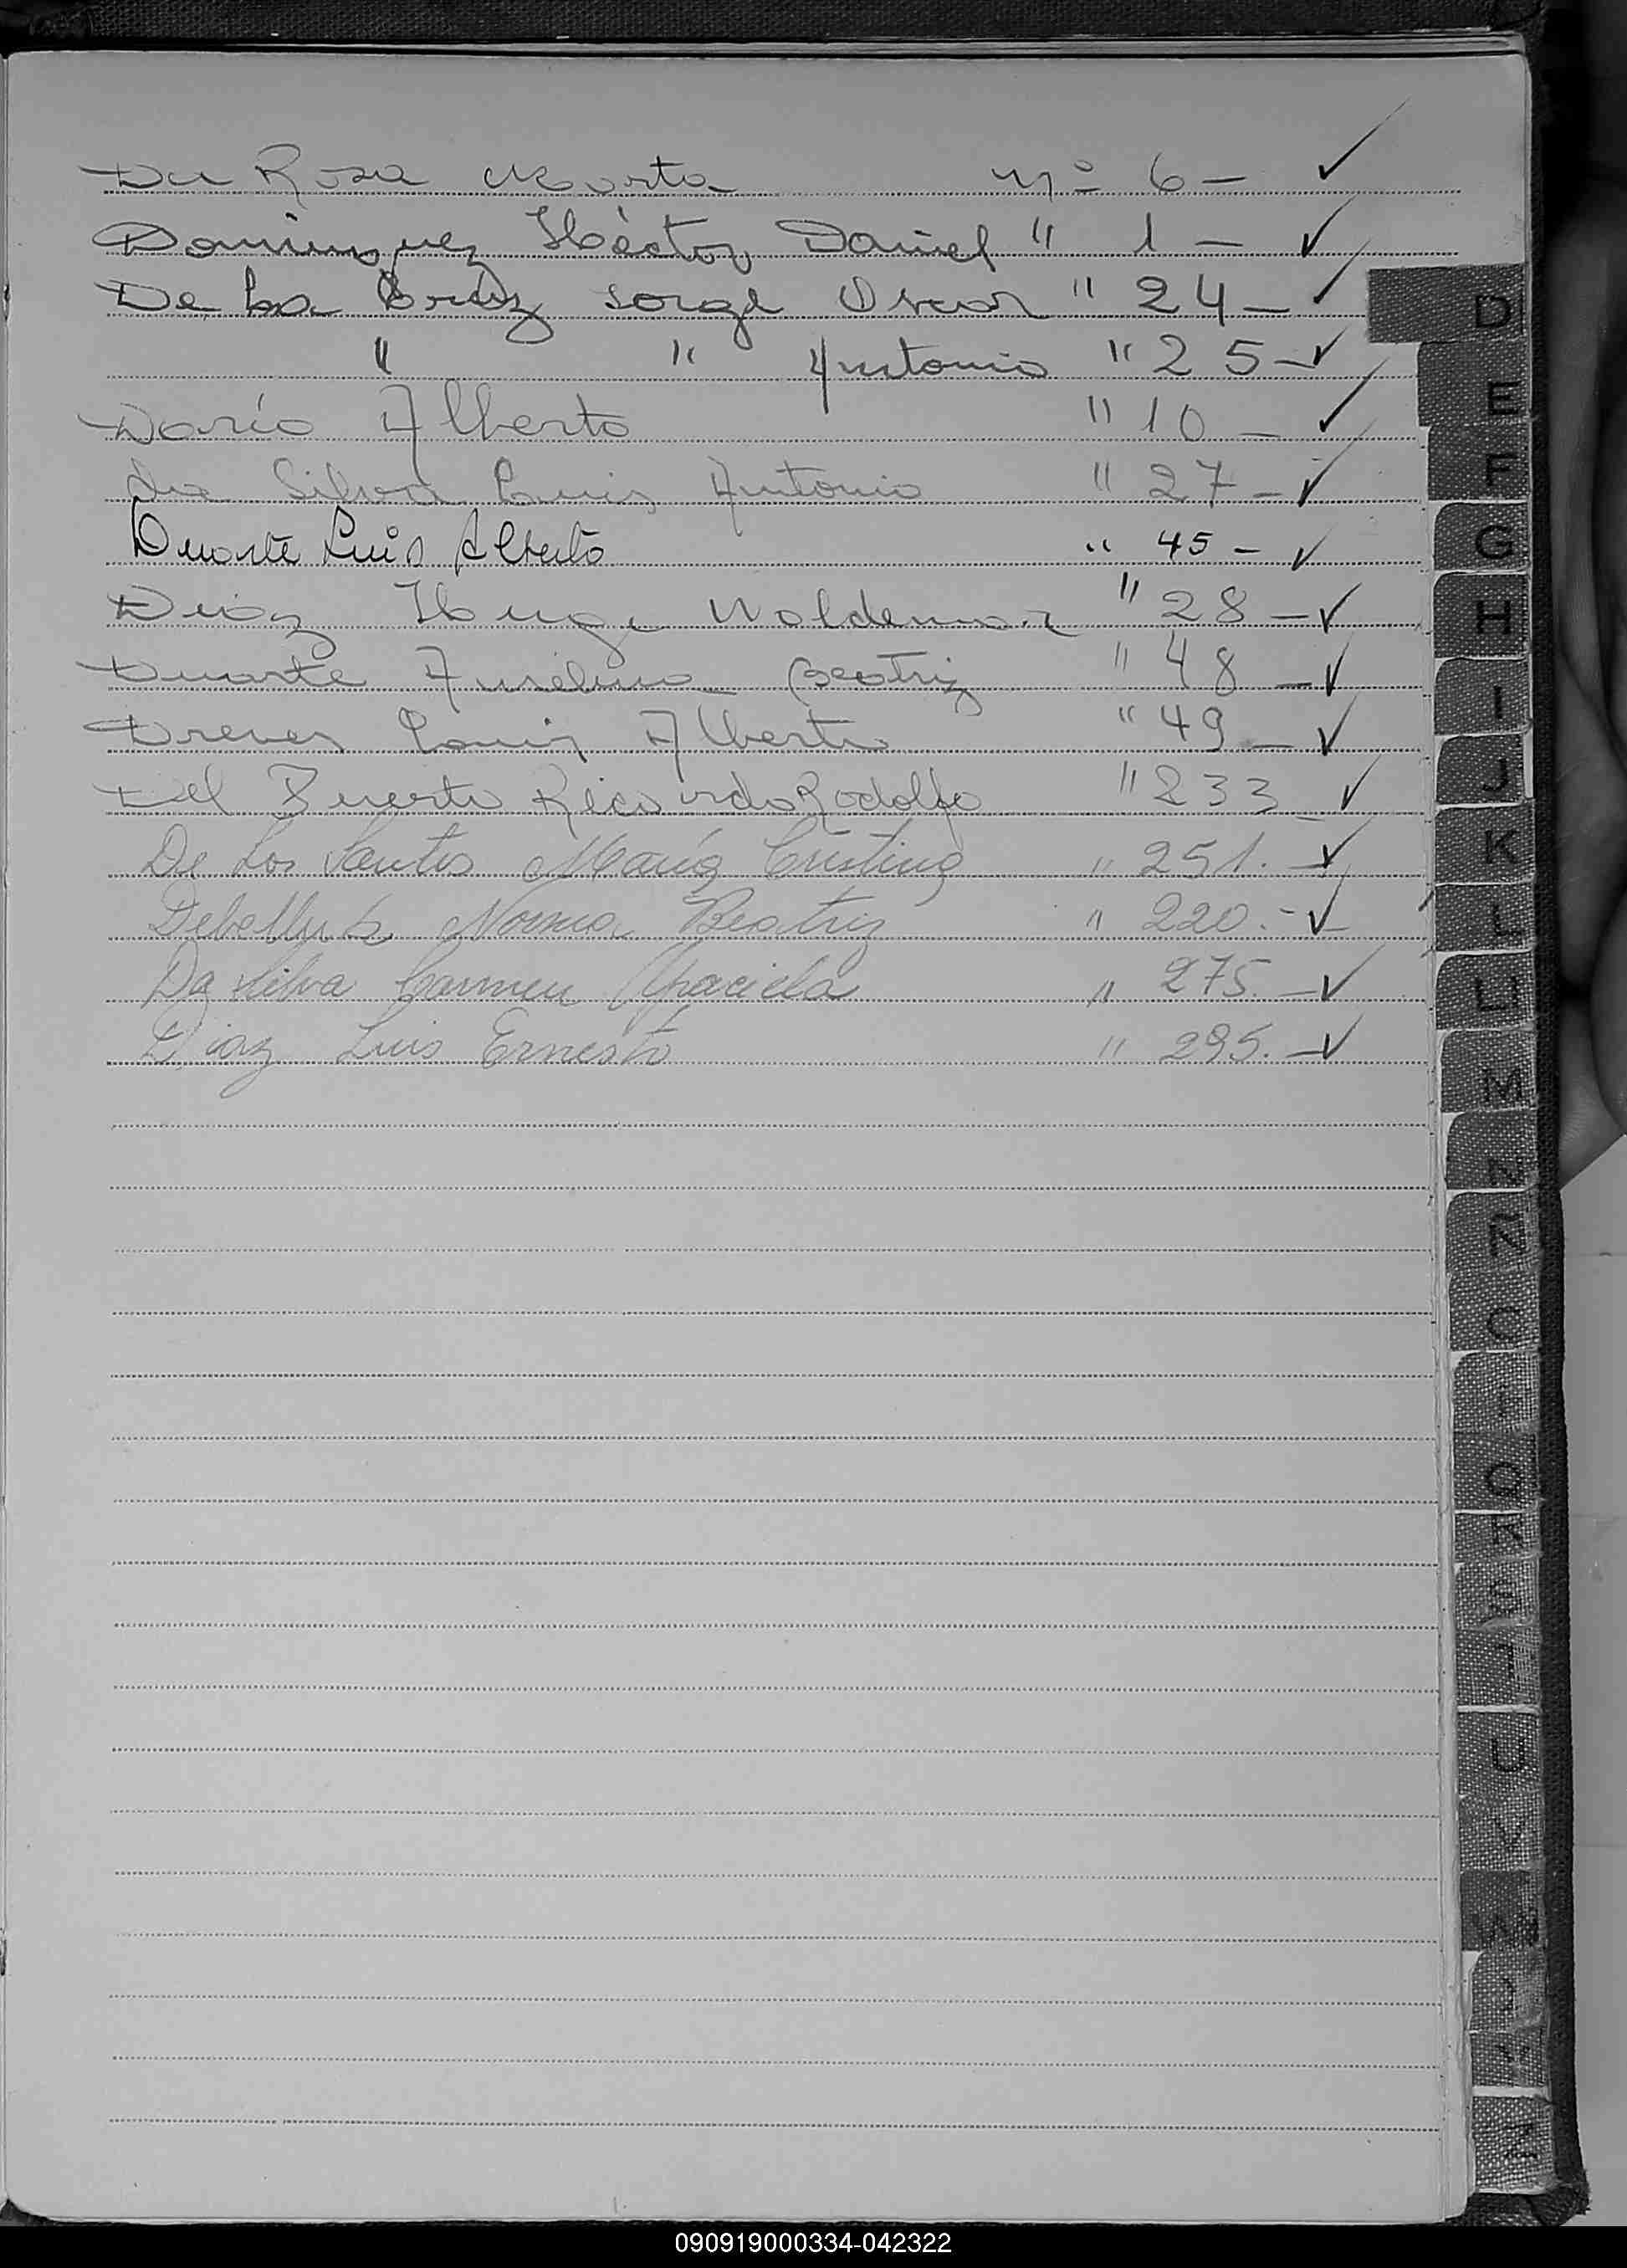 Da Rosa Marta nº 6 - ✓
Dominguez Héctor Daniel " 1 - ✓
De La Cruz Jorge Oscar " 24 - ✓
" " Antonio " 25 - ✓
Darío Alberto " 10 - ✓
da Silva Luis Antonio " 27 - ✓
Duarte Luis Alberto " 45 - ✓
Diaz Hugo Waldemar " 28 - ✓
Duarte Aurelina Beatriz " 48 - ✓
Dreves Luis Alberto " 49 - ✓
Del Puerto Ricardo Rodolfo " 233 ✓
De Los Santos María Cristina " 251. - ✓
Norma Beatriz " 220. - ✓
Da Silva Carmen Graciela " 275. - ✓
Diaz Luis Ernesto " 295. - ✓
D
E
F
G
H
I
J
K
L
LL
M
N
Ñ
O
Q
R
S
T
U
V
W
Z
090919000334-042322